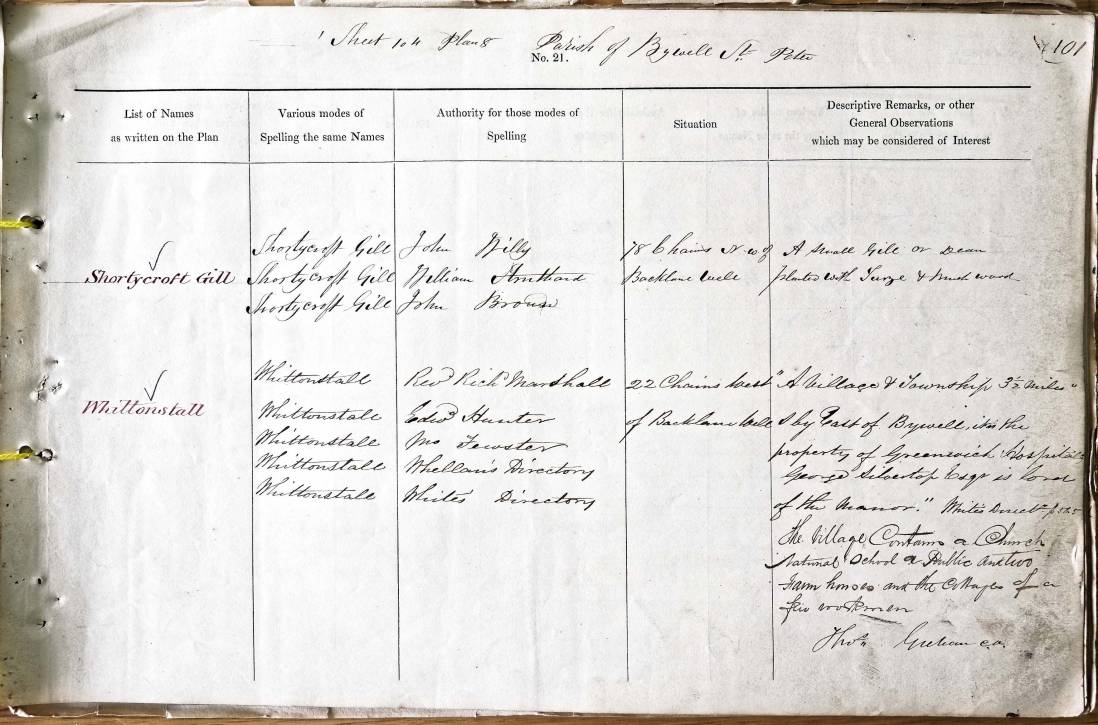 Sheet 104 Plan 8 Parish of Bywell St. Peter
101
No. 21.
List of Names
as written on the Plan
Various modes of
Spelling the same Names
Authority for those modes of
Spelling
Situation
Descriptive Remarks, or other
General Observations
which may be considered of Interest
Shortycroft Gill
Shortycroft Gill
Shortycroft Gill
Shortycroft Gill
John Willy
William
John Brown
78 Chains N.W. of
Backlane Well
A small Gill or Dean
planted with Furze &
Whittonstall
Whittonstall
Whittonstall
Whittonstall
Whittonstall
Whittonstall
Revd Richd Marshall
Edwd Hunter
Mr Fewster
Whellan's Directory
White's Directory
22 Chains West
of Backlane Well
"A Village & Township 3½ Miles
S by East of Bywell, it is the
property of Greenwich Hospital
George Silvertop Esqr is Lord
of the Manor." White's Direct
The Village Contains a Church
National School a Public and two
Farm houses and the Cottages of a
few workmen
Thos